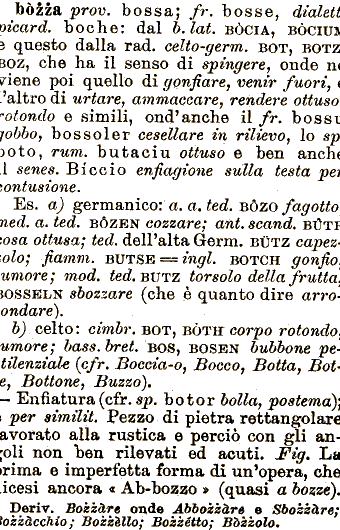 bòzza prov. bossa; fr. bosse, dialett.
picard. boche: dal b. lat. BÒCIA, BÒCIUM
e questo dalla rad. celto-germ. BOT, BOTZ
BOZ, che ha il senso di spingere, onde ne
viene poi quello di gonfiare, venir fuori, e
l'altro di urtare, ammaccare, rendere ottuso
rotondo e simili, ond'anche il fr. bossu
gobbo, bossoler cesellare in rilievo, lo sp.
boto, rum. butaciu ottuso e ben anche
il senes. Biccio enfiagione sulla testa per
contusione.
Es. a) germanico: a. a. ted. BÔZO fagotto,
med. a. ted. BÔZEN cozzare; ant. scand. BÛTR
cosa ottusa; ted. dell'alta Germ. BÜTZ capez-
zolo; fiamm. BUTSE = ingl. BOTCH gonfio,
tumore; mod. ted. BUTZ torsolo della frutta,
BOSSELN sbozzare (che è quanto dire arro-
tondare).
b) celto: cimbr. BOT, BÒTH corpo rotondo,
tumore; bass. bret. BOS, BOSEN bubbone pe-
stilenziale (cfr. Boccia-o, Bocco, Botta, Bot-
te, Bottone, Buzzo).
— Enfiatura (cfr. sp. botor bolla, postema);
e per similit. Pezzo di pietra rettangolare
lavorato alla rustica e perciò con gli an-
goli non ben rilevati ed acuti. Fig. La
prima e imperfetta forma di un'opera, che
dicesi ancora « Ab-bozzo » (quasi a bozze).
Deriv. Bozzàre onde Abbozzàre e Sbozzàre;
Bozzàcchio; Bozzèllo; Bozzétto; Bòzzolo.